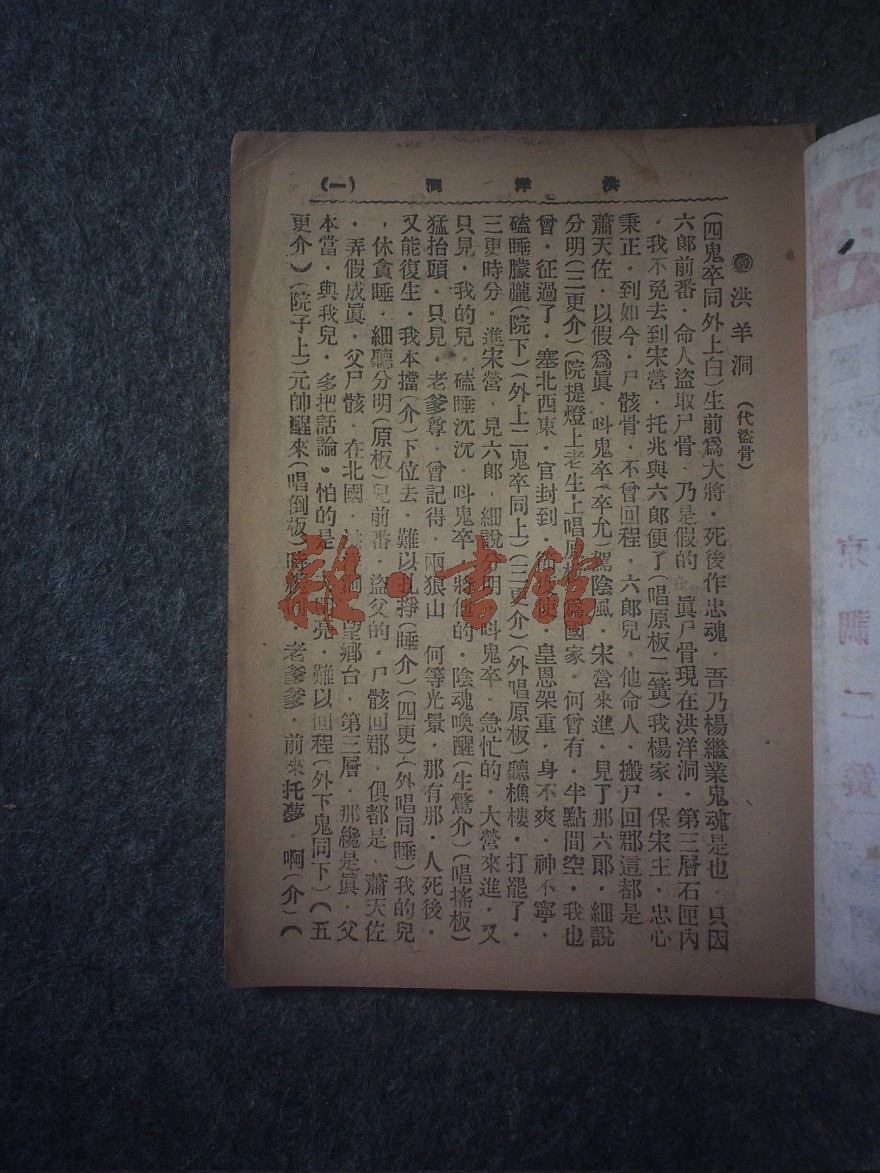 洪洋洞 (一)
洪羊洞 (代盜骨)
(四鬼卒同外上白)生前爲大將·死後作忠魂·吾乃楊繼業鬼魂是也·只因
六郎前番·命人盜取尸骨·乃是假的 眞尸骨現在洪洋洞·第三層石匣內
·我不免去到宋營·托兆與六郎便了(唱原板二簧)我楊家·保宋主·忠心
秉正·到如今·尸骸骨·不曾回程·六郎兒·他命人·搬尸回郡這都是
蕭天佐·以假爲眞·呌鬼卒(卒允)駕陰風·宋營來進·見了那六郎·細說
分明(二更介)(院提燈上老生上唱原 爲國家·何曾有·半點間空·我也
曾·征過了·塞北西東·官封到 皇恩架重·身不爽·神不寧·
磕睡朦朧(院下)(外上二鬼卒同上)(三更介)(外唱原板)聽樵樓·打罷了·
三更時分·進宋營·見六郎·細說 明 呌鬼卒·急忙的·大營來進·又
只見·我的兒·磕睡沉沉·呌鬼卒·將他的·陰魂喚醒(生驚介)(唱搖板)
猛抬頭·只見·老爹尊·曾記得·兩狼山 何等光景·那有那·人死後·
又能復生·我本擋(介)下位去·難以扎掙(睡介)(四更)(外唱同睡)我的兒
·休貪睡·細聽分明(原板)兒前番·盜父的·尸骸回郡·俱都是·蕭天佐
·弄假成眞·父尸骸·在北國 望鄉台·第三層·那纔是眞·父
本當·與我兒·多把話論·怕的是 亮·難以回程(外下鬼同下)(五
更介)(院子上)元帥醒來(唱倒板) 老爹爹·前來托夢·啊(介)(
雜書館
京調二簧